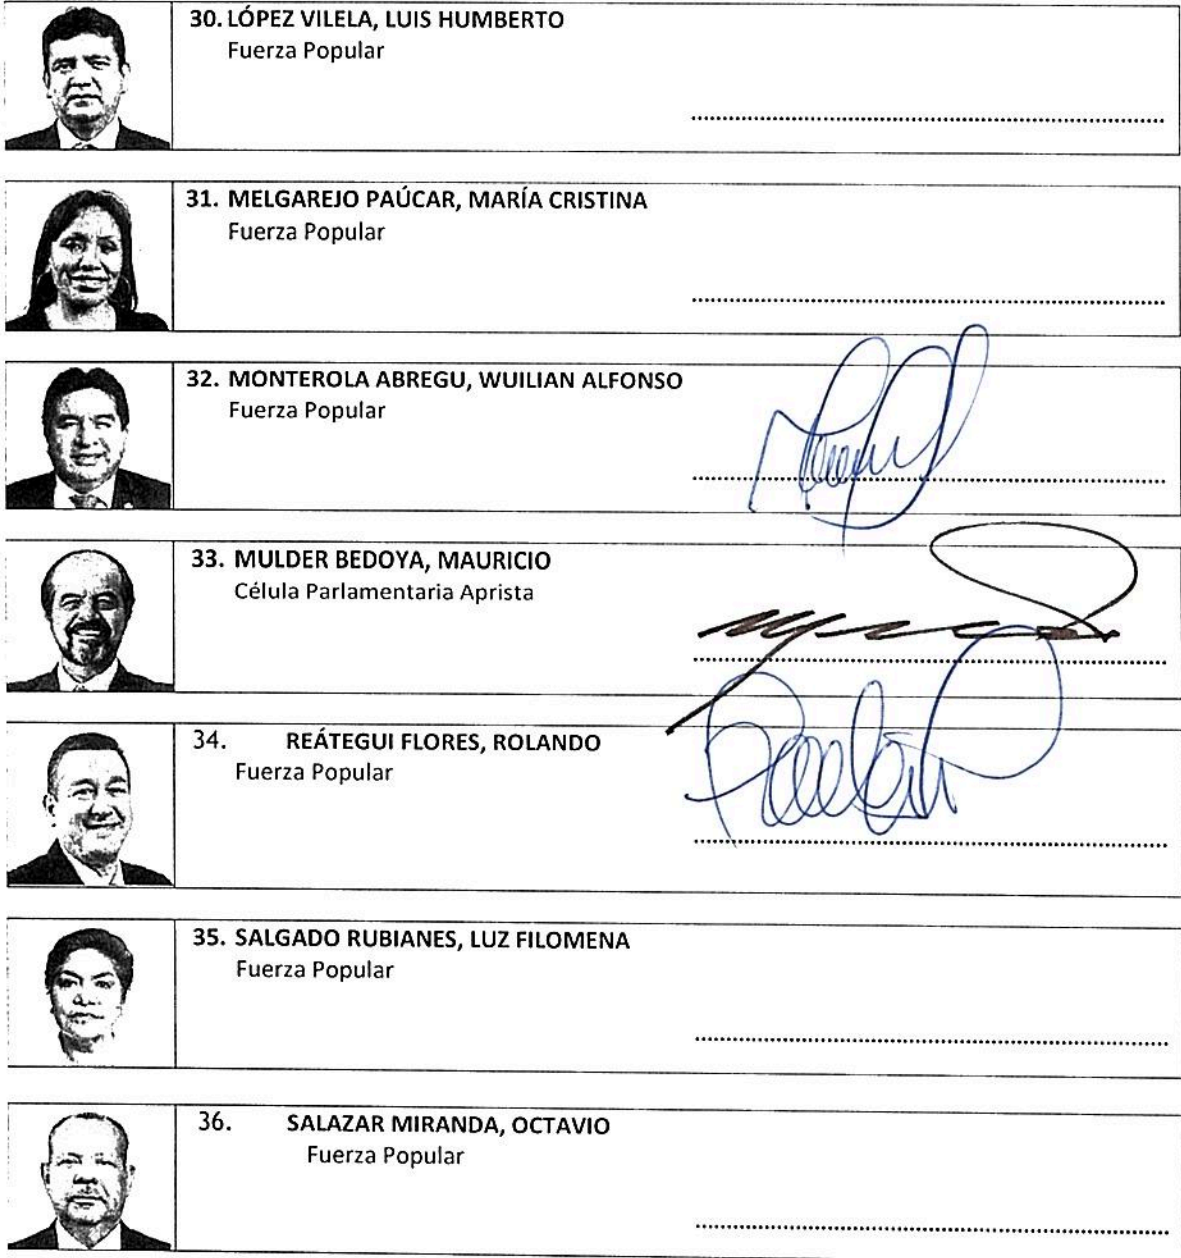 30. LÓPEZ VILELA, LUIS HUMBERTO
Fuerza Popular
31. MELGAREJO PAÚCAR, MARÍA CRISTINA
Fuerza Popular
32. MONTEROLA ABREGU, WUILIAN ALFONSO
Fuerza Popular
33. MULDER BEDOYA, MAURICIO
Célula Parlamentaria Aprista
34. REÁTEGUI FLORES, ROLANDO
Fuerza Popular
35. SALGADO RUBIANES, LUZ FILOMENA
Fuerza Popular
36. SALAZAR MIRANDA, OCTAVIO
Fuerza Popular